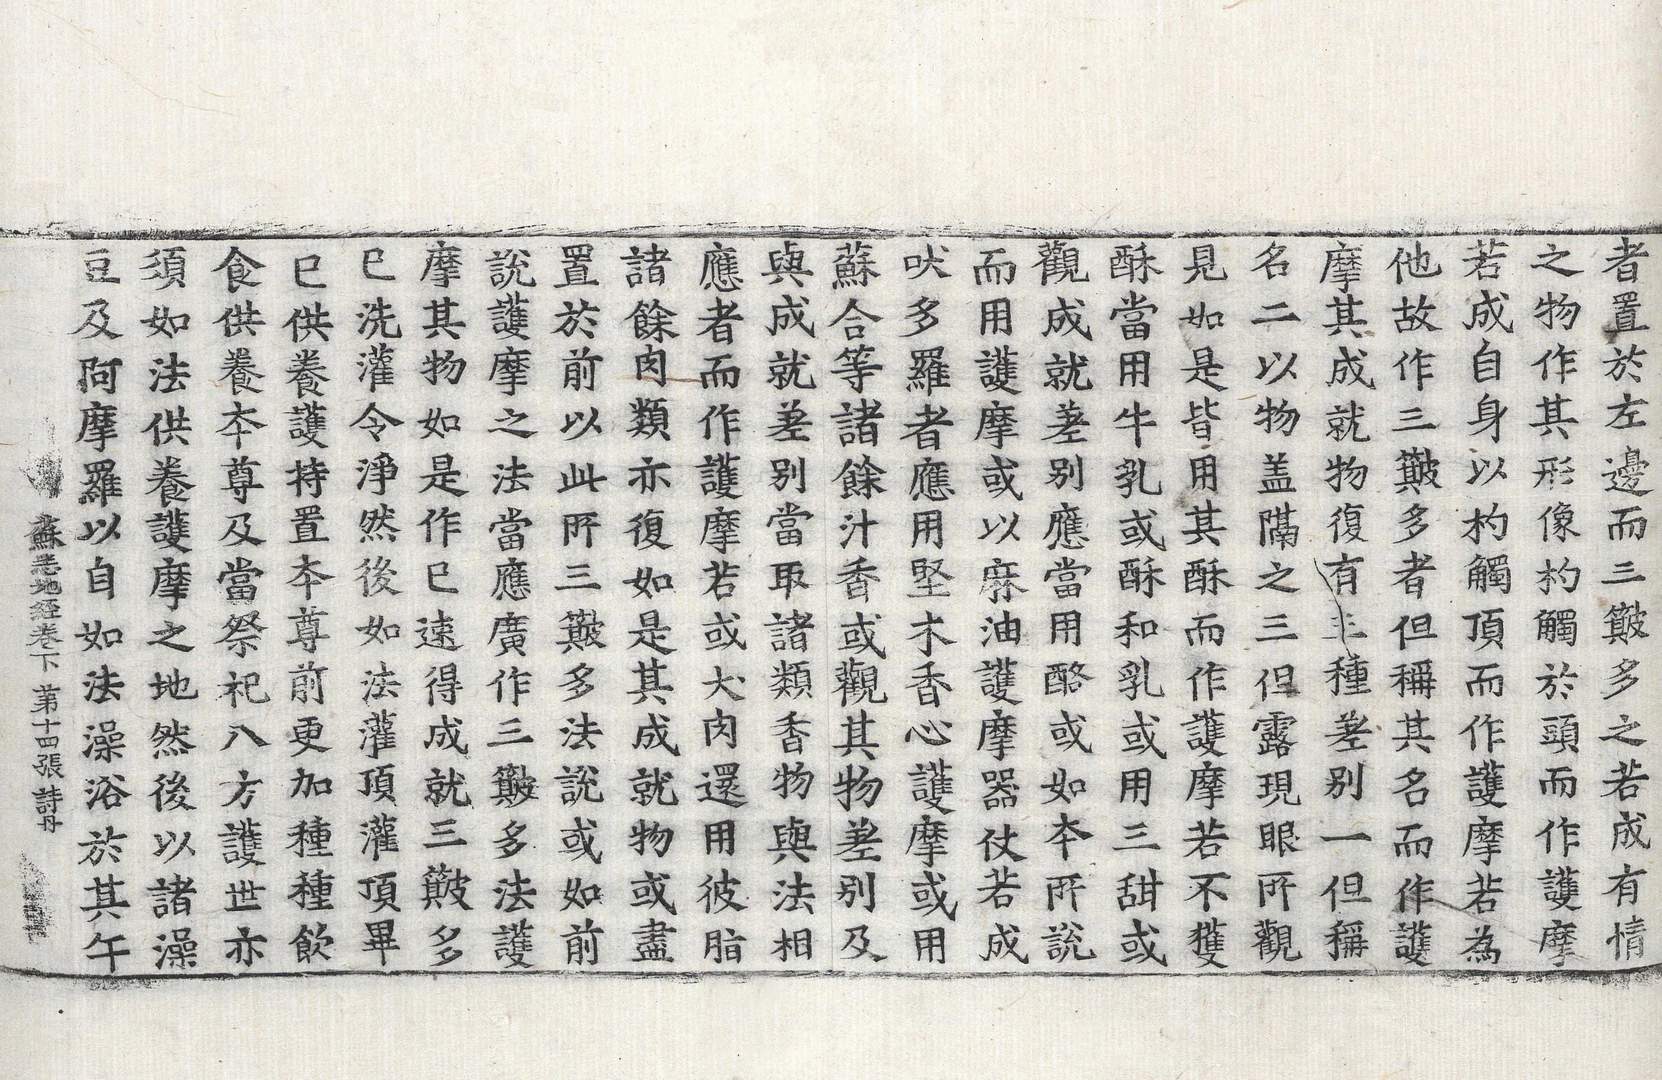 者置於左邊而三簸多之若成有情
之物作其形像杓觸於頭而作護摩
若成自身以杓觸頂而作護摩若為
他故作三簸多者但稱其名而作護
摩其成就物復有三種差别一但稱
名二以物盖隔之三但露現眼所觀
見如是皆用其酥而作護摩若不獲
酥當用牛乳或酥和乳或用三甜或
觀成就差别應當用酪或如本所說
而用護摩或以麻油護摩器仗若成
吠多羅者應用堅木香心護摩或用
蘇合等諸餘汁香或觀其物差别及
與成就差别當取諸類香物與法相
應者而作護摩若或犬肉還用彼脂
諸餘肉類亦復如是其成就物或盡
置於前以此所三簸多法說或如前
說護摩之法當應廣作三簸多法護
摩其物如是作已速得成就三簸多
已洗灌令淨然後如法灌頂灌頂畢
已供養護持置本尊前更加種種飲
食供養本尊及當祭祀八方護世亦
須如法供養護摩之地然後以諸澡
豆及阿摩羅以自如法澡浴於其午
蘇悉地經卷下 第十四張 詩丹